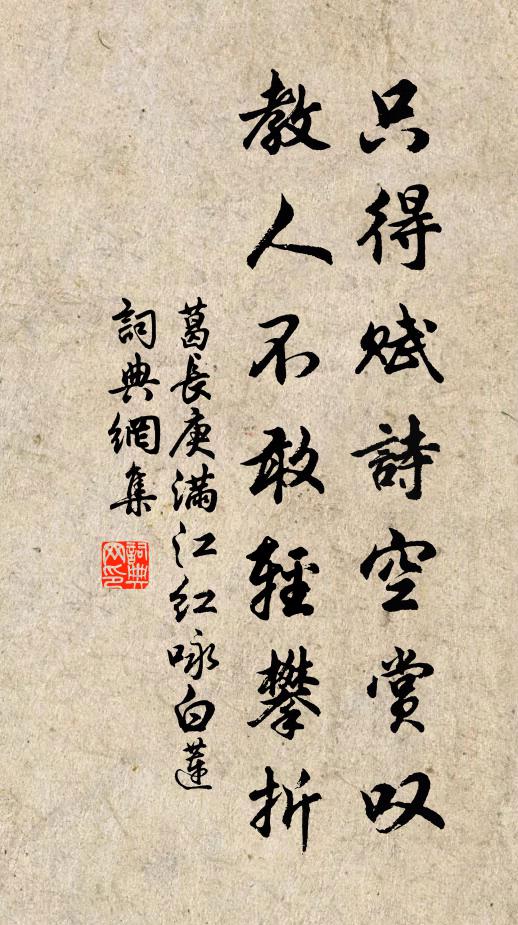 只得赋詩空赏叹
教人不敢輕攀折
葛長庚满江红咏白蓮
詞典網集
詞典网印